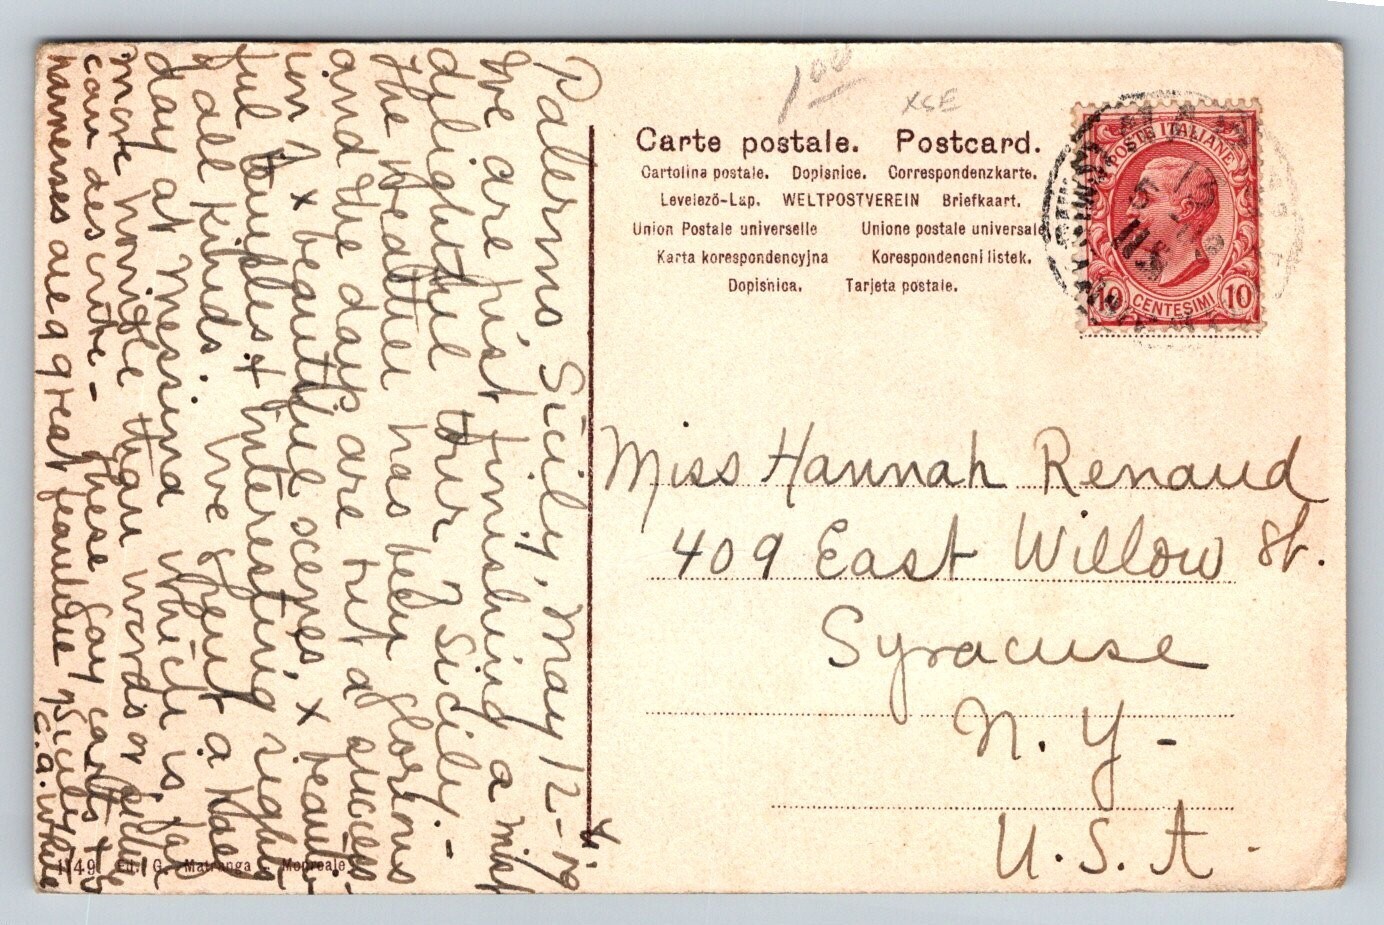 1 00
XSE
Carte postale. Postcard.
Cartolina postale. Dopisnice. Correspondenzkarte.
Levelező-Lap. WELTPOSTVEREIN Briefkaart.
Union Postale universelle Unione postale universale
Karta korespondencyjna Korespondencni listek.
Dopisnica. Tarjeta postale.
POSTE ITALIANE
10 CENTESIMI 10
Miss Hannah Renaud
409 East Willow St.
Syracuse
N. Y -
U. S. A.
Palermo, Sicily, May 12-'19
We are just finishing a most
delightful tour Sicily. -
The weather has been glorious
and the days are but a
in x beautiful scenes x
ful temples & interesting
of all kinds. We spent a
day at Messina which is far
more horrible than words or
can describe - These gay carts &
harnesses are a great feature Sicily
E. A. White
1149 Ed. G. Matranga - Monreale